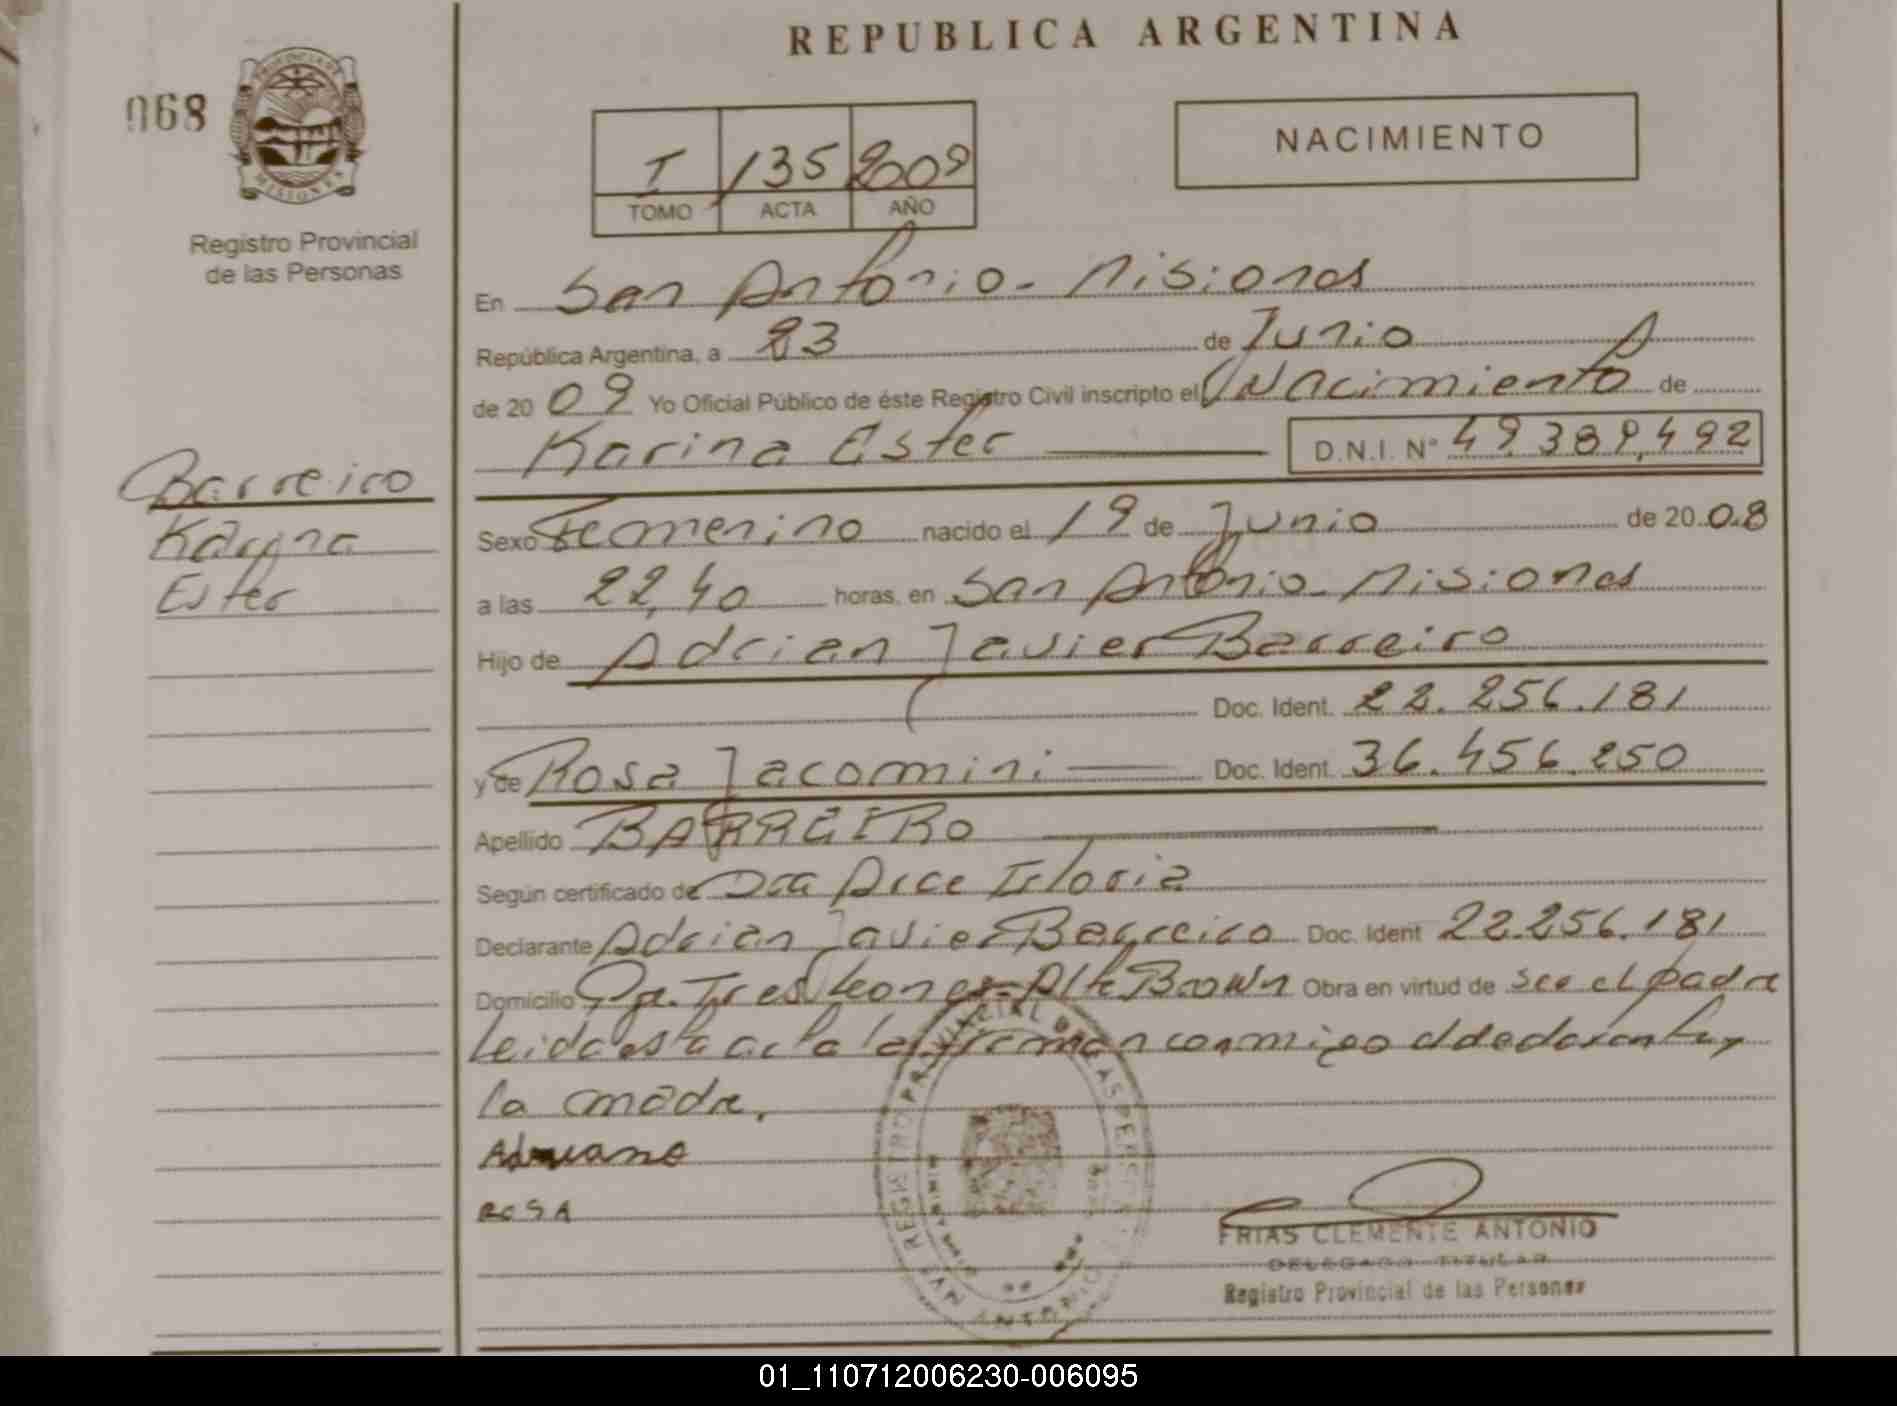 REPUBLICA ARGENTINA
068
PROVINCIA DE
MISIONES
Registro Provincial
de las Personas
I 135 2009
TOMO ACTA AÑO
NACIMIENTO
En San Antonio - Misiones
República Argentina, a 23 de Junio
de 2009 Yo Oficial Público de éste Registro Civil inscripto el Nacimiento de
Karina Ester D.N.I. Nº 49.389.492
Barreiro
Karina
Ester
Sexo Femenino nacido el 19 de Junio de 2008
a las 22,40 horas, en San Antonio - Misiones
Hijo de Adrian Javier Barreiro
Doc. Ident. 22.256.181
y de Rosa Jacomini Doc. Ident. 36.456.250
Apellido BARREIRO
Según certificado de Dra Arce Gloria
Declarante Adrian Javier Barreiro Doc. Ident 22.256.181
Domicilio Pje. Tres Leones - Alte Brown Obra en virtud de ser el padre
Leida esta acta la firman conmigo el declarante y
la madre.
ROSA
REGISTRO PROVINCIAL DE LAS PERSONAS
ANTONIO
FRIAS CLEMENTE ANTONIO
DELEGADO TITULAR
Registro Provincial de las Personas
01_110712006230-006095